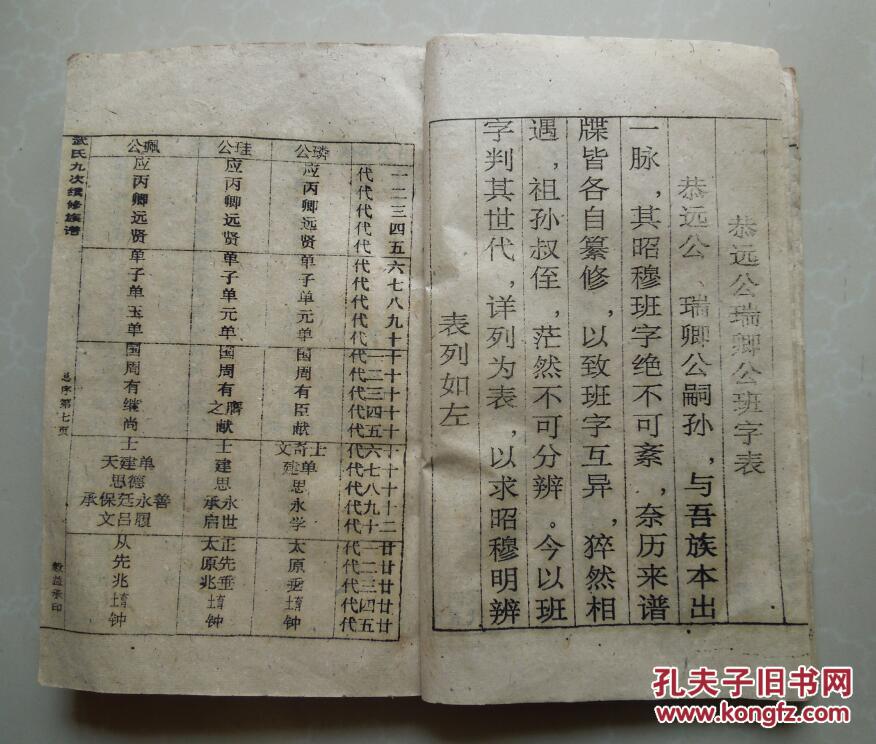 恭远公瑞卿公班字表
恭远公、瑞卿公嗣孙，与吾族本出
一脉，其昭穆班字绝不可紊，奈历来谱
牒皆各自纂修，以致班字互异，猝然相
遇，祖孙叔侄，茫然不可分辨。今以班
字判其世代，详列为表，以求昭穆明辨
表列如左
一二三四五六七八九十十一十二十三十四十五十六十七十八十九二十廿一廿二廿三廿四廿五
代代代代代代代代代代代代代代代代代代代代代代代代代
公璘
应丙卿远贤
单子单元单
国周有臣献
文奇士
建单
思
永
学
太原垂堉钟
公珪
应丙卿远贤
单子单元单
国周有之膺献
士
建
思
承永
启世
太正
原先
兆垂
堉
钟
公珮
应丙卿远贤
单子单玉单
国周有继尚
士
天建单
思德
承保廷永善
文吕履
从先兆堉钟
武氏九次续修族谱
总序第七页
毅益承印
孔夫子旧书网
www.kongfz.com